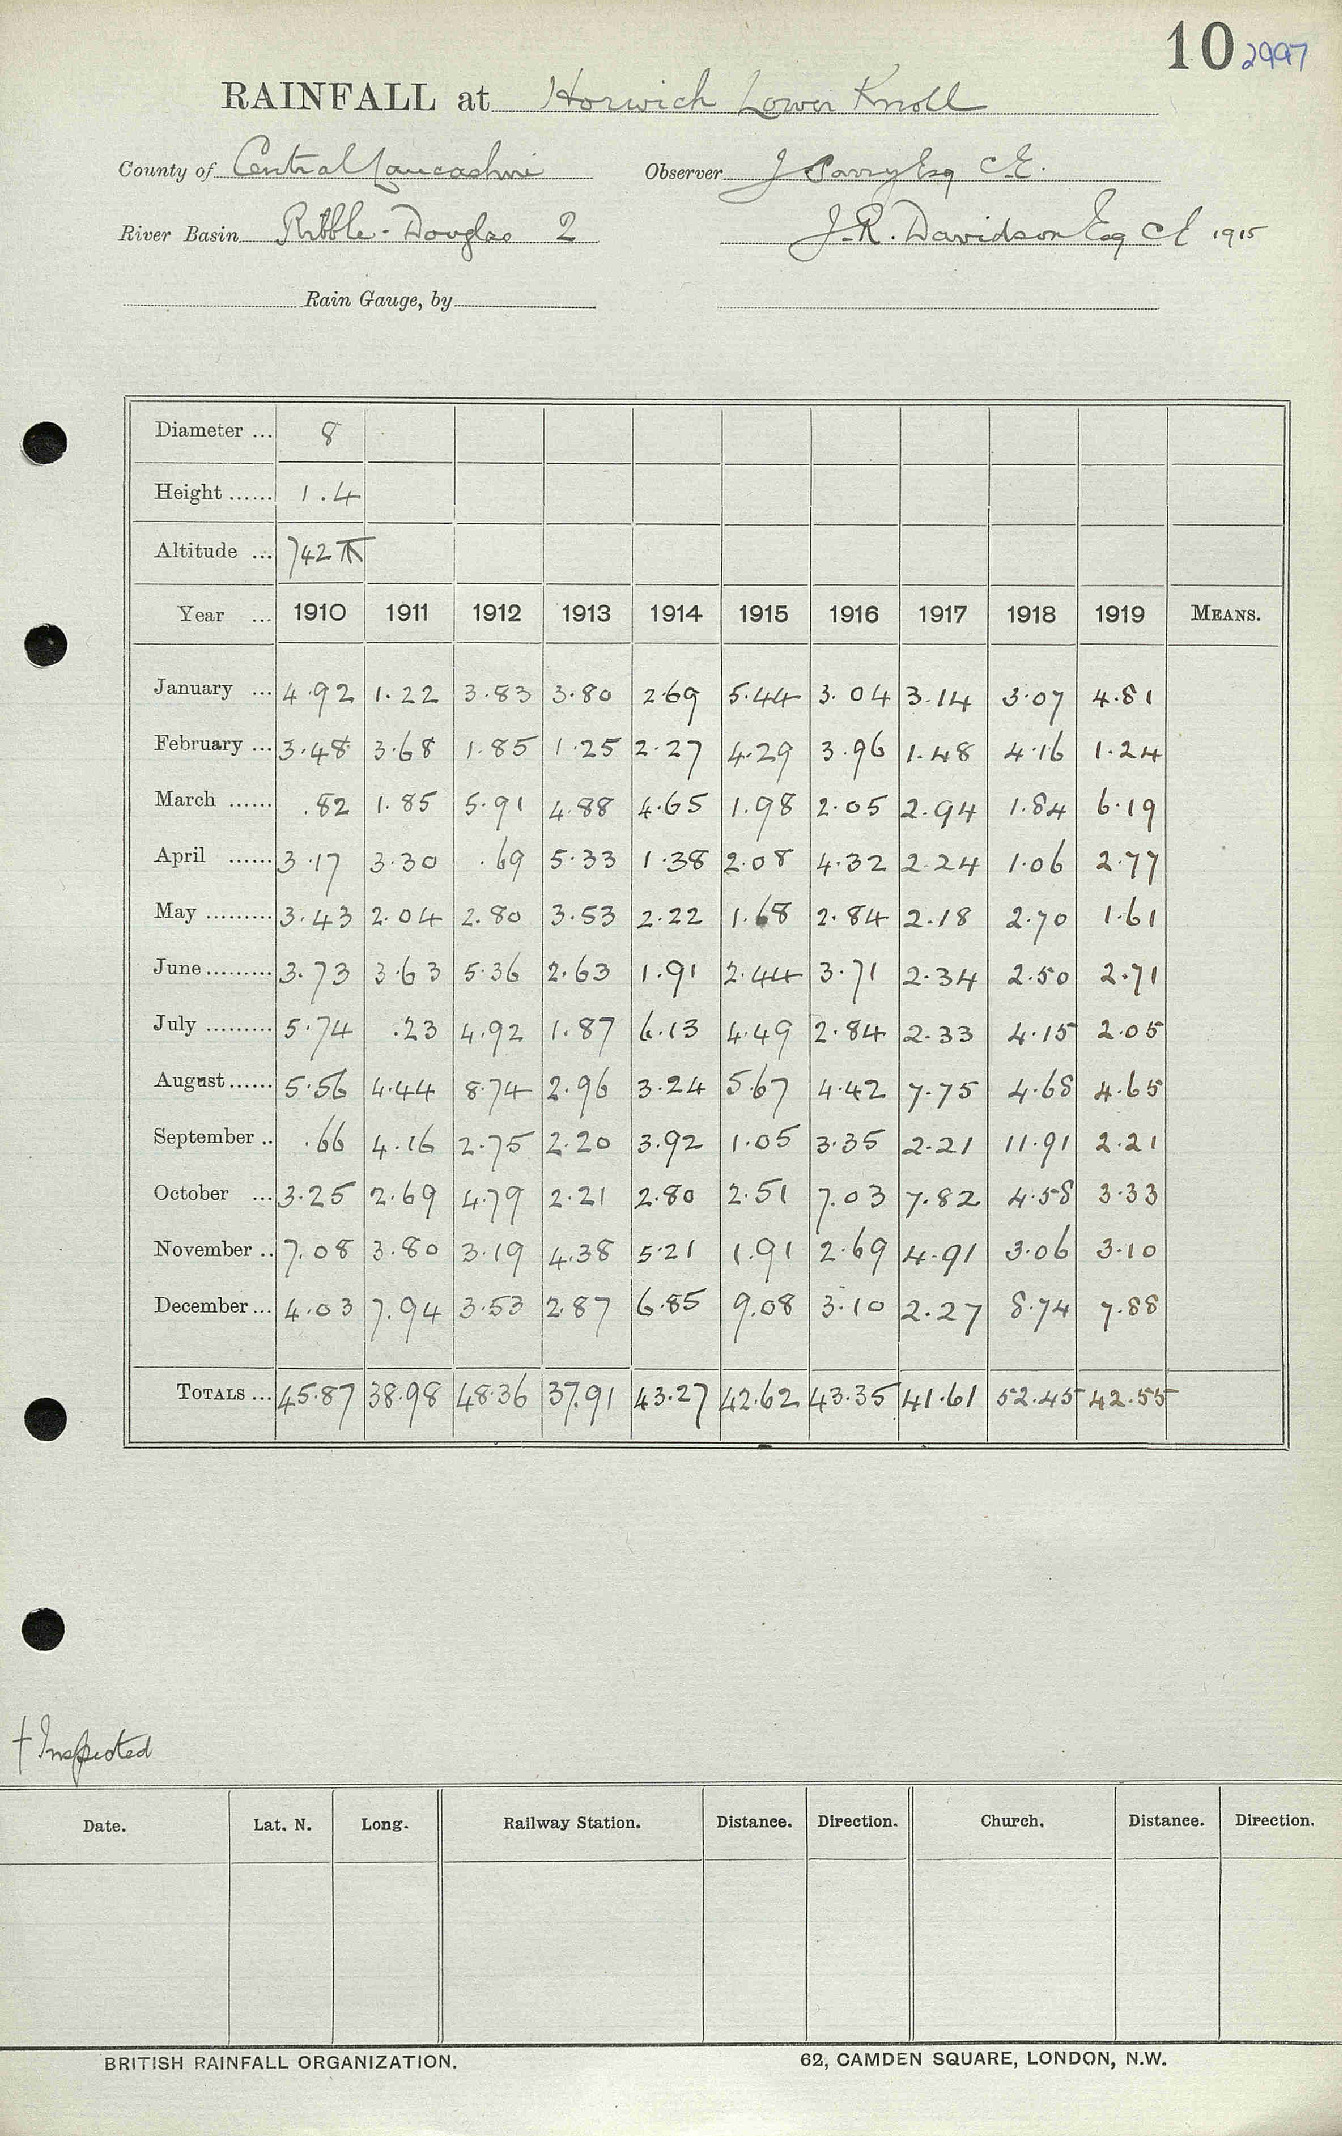 10 2997
RAINFALL at Horwich Lower Knoll
County of Central Lancashire Observer J Parry Esq C.E.
River Basin Ribble-Douglas 2 J.R. Davidson Esq CE 1915
Rain Gauge, by
Diameter ... 8
Height ...... 1.4
Altitude ... 742
Year ... 1910 1911 1912 1913 1914 1915 1916 1917 1918 1919 MEANS.
January ... 4.92 1.22 3.83 3.80 2.69 5.44 3.04 3.14 3.07 4.81
February ... 3.48 3.68 1.85 1.25 2.27 4.29 3.96 1.48 4.16 1.24
March ...... .82 1.85 5.91 4.88 4.65 1.98 2.05 2.94 1.84 6.19
April ...... 3.17 3.30 .69 5.33 1.38 2.08 4.32 2.24 1.06 2.77
May ......... 3.43 2.04 2.80 3.53 2.22 1.68 2.84 2.18 2.70 1.61
June ......... 3.73 3.63 5.36 2.63 1.91 2.44 3.71 2.34 2.50 2.71
July ......... 5.74 .23 4.92 1.87 6.13 4.49 2.84 2.33 4.15 2.05
August ...... 5.56 4.44 8.74 2.96 3.24 5.67 4.42 7.75 4.68 4.65
September .. .66 4.16 2.75 2.20 3.92 1.05 3.35 2.21 11.91 2.21
October ... 3.25 2.69 4.79 2.21 2.80 2.51 7.03 7.82 4.58 3.33
November .. 7.08 3.80 3.19 4.38 5.21 1.91 2.69 4.91 3.06 3.10
December ... 4.03 7.94 3.53 2.87 6.85 9.08 3.10 2.27 8.74 7.88
TOTALS ... 45.87 38.98 48.36 37.91 43.27 42.62 43.35 41.61 52.45 42.55
† Inspected
Date. Lat. N. Long. Railway Station. Distance. Direction. Church. Distance. Direction.
BRITISH RAINFALL ORGANIZATION. 62, CAMDEN SQUARE, LONDON, N.W.